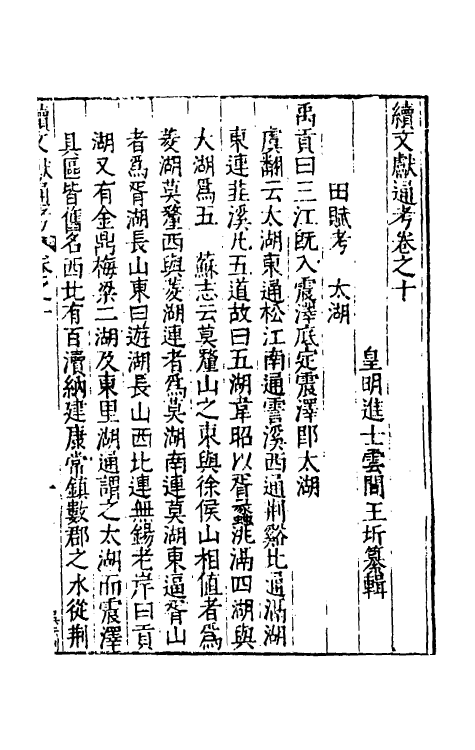 續文獻通考卷之十
皇明進士雲間王圻纂輯
田賦考　太湖
禹貢曰三江旣入震澤底定震澤即太湖
虞翻云太湖東通松江南通霅溪西通荆谿北通滆湖
東連韭溪凡五道故曰五湖韋昭以胥蠡洮滆四湖與
大湖爲五　蘇志云莫釐山之東與徐侯山相值者爲
菱湖莫釐西與菱湖連者爲莫湖南連莫湖東逼胥山
者爲胥湖長山東曰遊湖長山西北連無錫老岸曰貢
湖又有金鼎梅梁二湖及東里湖通謂之太湖而震澤
具區皆舊名西北有百瀆納建康常鎮數郡之水從荆
續文獻通考　卷之十　一